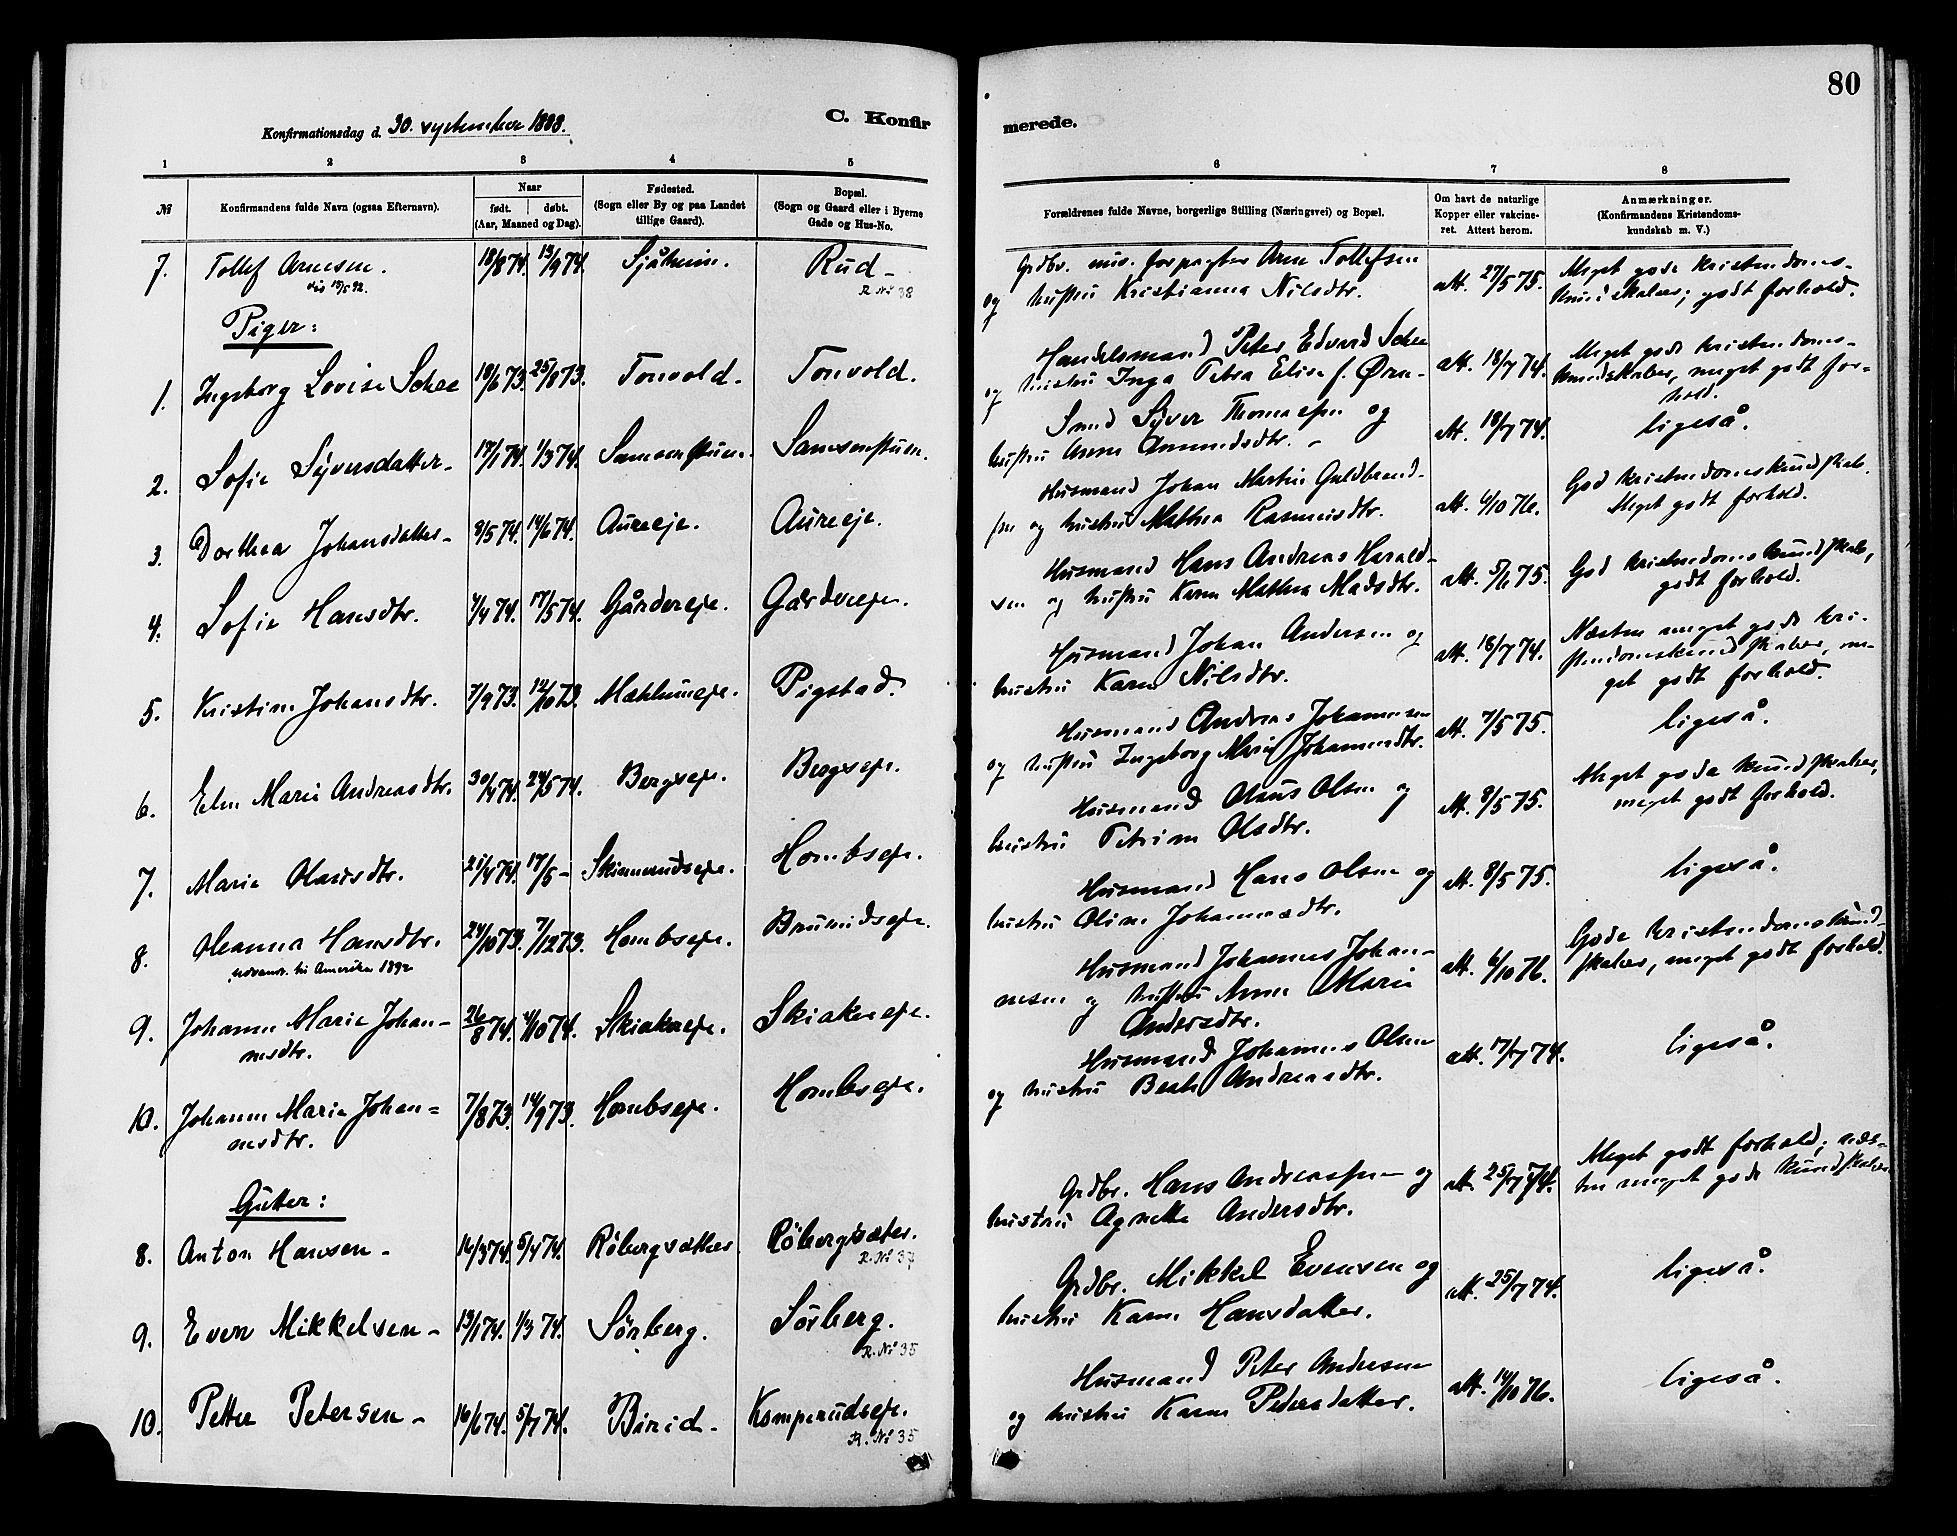 80
Konfirmationsdag d. 30. september 1888.
C. Konfir
merede.
1 2 3 4 5 6 7 8
№
Konfirmandens fulde Navn (ogsaa Efternavn).
Naar
født. døbt.
(Aar, Maaned og Dag).
Fødested.
(Sogn eller By og paa Landet
tillige Gaard).
Bopæl.
(Sogn og Gaard eller i Byerne
Gade og Hus-No.
Forældrenes fulde Navne, borgerlige Stilling (Næringsvei) og Bopæl.
Om havt de naturlige
Kopper eller vakcine-
ret. Attest herom.
Anmærkninger.
(Konfirmandens Kristendoms-
kundskab m. V.)
7. Tollef Arnesen. 18/8 74. 13/9 74. Sjåheim. Rud-
R. No 38
Grdbr. forpagter Arne Tollefsen
og hustru Kristianna Nilsdtr.
att. 27/5 75.
Meget gode kristendoms-
kundskaber; godt forhold.
Piger:
1. Ingeborg Lovise Schee 18/6 73. 25/8 73. Tonvold. Tonvold.
Handelsmand Peter Edvard Schee
og hustru Inga Petra Elise f. Ørn-
att. 18/7 74.
Meget gode kristendoms-
kundskaber, meget godt for-
hold.
2. Sofie Syversdatter- 17/1 74. 1/3 74. Samsonstuen. Samsonstuen.
Smed Syver Thomasen og
hustru Anne Amundsdtr. -
att. 18/7 74.
ligeså.
3. Dorthea Johansdatter- 8/5 74. 14/6 74. Aureeje. Aureeje.
Husmand Johan Martin Guldbrand-
sen og hustru Mathea Rasmusdtr.
att. 6/10 76.
God kristendomskundskab.
Meget godt forhold.
4. Sofie Hansdtr. 4/4 74. 17/5 74. Gårdereje. Gårdereje.
Husmand Hans Andreas Harald-
sen og hustru Karen Mathea Madsdtr.
att. 5/6 75.
God kristendomskundskab,
godt forhold.
5. Kristine Johansdtr. 7/9 73. 12/10 73. Mæhlumeje. Pigstad.
Husmand Johan Andersen og
hustru Karen Nilsdtr.
att. 18/7 74.
Næsten meget gode kri-
stendomskundskaber, me-
get godt forhold.
6. Elen Marie Andreasdtr. 30/4 74. 24/5 74. Bergseje. Bergseje.
Husmand Andreas Johannesen
og hustru Ingeborg Marie Johannesdtr.
att. 7/5 75.
ligeså.
7. Marie Olausdtr. 21/4 74. 17/5 - Skinnerudseje. Hombseje.
Husmand Olaus Olsen og
hustru Petrine Olsdtr.
att. 8/5 75.
Meget gode kundskaber,
meget godt forhold.
8. Oleanna Hansdtr. 24/10 73. 7/12 73. Hombseje. Brunidseje.
udvandr. til Amerika 1892
Husmand Hans Olsen og
hustru Oline Johannesdtr.
att. 8/5 75.
ligeså.
9. Johanne Marie Johan-
nesdtr. 26/8 74. 4/10 74. Skiakereje. Skiakereje.
Husmand Johannes Johan-
nesen og hustru Anne Marie
Andersdtr.
att. 6/10 76.
Gode kristendomskund-
skaber, meget godt forhold.
10. Johanne Marie Johan-
nesdtr. 7/8 73. 14/9 73. Hombseje. Hombseje.
Husmand Johannes Olsen
og hustru Beate Andreasdtr.
att. 17/7 74.
ligeså.
Gutter:
8. Anton Hansen- 16/3 74. 5/4 74. Röbergsæther Röbergsæter.
R. No 37
Grdbr. Hans Andreassen og
hustru Agnette Andersdtr.
att. 25/7 74.
Meget godt forhold; næs-
ten meget gode kundskaber
9. Even Mikkelsen- 13/1 74. 1/3 74. Sörberg. Sörberg.
R. No 35
Grdbr. Mikkel Evensen og
hustru Karen Hansdatter.
att. 25/7 74.
ligeså.
10. Petter Petersen- 16/6 74. 5/7 74. Birid- Kamperudseje.
R. No 35
Husmand Peter Andersen
og hustru Karen Pedersdatter.
att. 14/10 76.
ligeså.